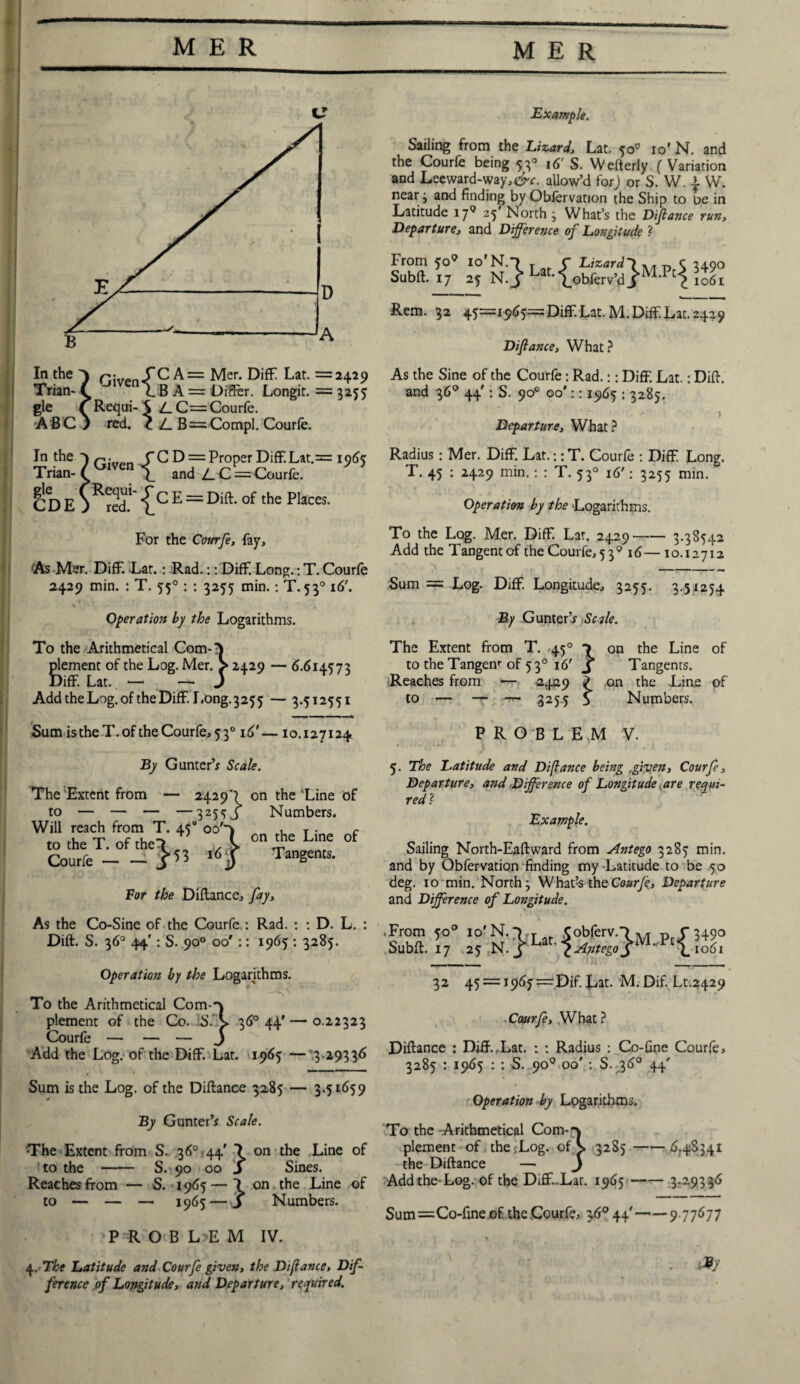 MER
MER
C
E
D
B
A
In the } Given { C A = Mer. Diff. Lat. = 2429
Trian- { B A = Differ. Longit. = 3255
gle { Requi- { ∠ C = Courſe.
A B C } red. { ∠ B = Compl. Courſe.
In the } Given { C D = Proper Diff. Lat. = 1965
Trian- { and ∠ C = Courſe.
gle { Requi- { C E = Diſt. of the Places.
C D E } red.
For the Courſe, ſay,
As Mer. Diff. Lat. : Rad. : : Diff. Long. : T. Courſe
2429 min. : T. 55° : : 3255 min. : T. 53° 16'.
Operation by the Logarithms.
To the Arithmetical Com-
plement of the Log. Mer. } 2429 — 6.614573
Diff. Lat. — —
Add the Log. of the Diff. Long. 3255 — 3.512551
Sum is the T. of the Courſe, 53° 16' — 10.127124
By Gunter's Scale.
The Extent from — 2429 } on the Line of
to — — — — 3255 } Numbers.
Will reach from T. 45° 00' } on the Line of
to the T. of the } 53 16 } Tangents.
Courſe — —
For the Diſtance, ſay,
As the Co-Sine of the Courſe : Rad. : : D. L. :
Diſt. S. 36° 44' : S. 90° 00' : : 1965 : 3285.
Operation by the Logarithms.
To the Arithmetical Com-
plement of the Co. S. } 36° 44' — 0.22323
Courſe — — —
Add the Log. of the Diff. Lat. 1965 — 3.29336
Sum is the Log. of the Diſtance 3285 — 3.51659
By Gunter's Scale.
The Extent from S. 36° 44' } on the Line of
to the —— S. 90 00 } Sines.
Reaches from — S. 1965 — } on the Line of
to — — — 1965 — } Numbers.
PROBLEM IV.
4. The Latitude and Courſe given, the Diſtance, Dif-
ference of Longitude, and Departure, required.
Example.
Sailing from the Lizard, Lat. 50° 10' N. and
the Courſe being 53° 16' S. Weſterly (Variation
and Leeward-way, &c. allow'd for) or S. W. ¾ W.
near; and finding by Obſervation the Ship to be in
Latitude 17° 25' North; What's the Diſtance run,
Departure, and Difference of Longitude?
From 50° 10' N. } Lat. { Lizard } M. Pt { 3490
Subſt. 17 25 N. } { obſerv'd } { 1061
Rem. 32 45 = 1965 = Diff. Lat. M. Diff. Lat. 2429
Diſtance, What?
As the Sine of the Courſe : Rad. : : Diff. Lat. : Diſt.
and 36° 44' : S. 90° 00' : : 1965 : 3285.
Departure, What?
Radius : Mer. Diff. Lat. : : T. Courſe : Diff. Long.
T. 45 : 2429 min. : : T. 53° 16' : 3255 min.
Operation by the Logarithms.
To the Log. Mer. Diff. Lat. 2429 —— 3.38542
Add the Tangent of the Courſe, 53° 16 — 10.12712
Sum = Log. Diff. Longitude, 3255. 3.51254
By Gunter's Scale.
The Extent from T. 45° } on the Line of
to the Tangent of 53° 16' } Tangents.
Reaches from — 2429 } on the Line of
to — — — 3255 } Numbers.
PROBLEM V.
5. The Latitude and Diſtance being given, Courſe,
Departure, and Difference of Longitude are requi-
red?
Example.
Sailing North-Eaſtward from Antego 3285 min.
and by Obſervation finding my Latitude to be 50
deg. 10 min. North; What's the Courſe, Departure
and Difference of Longitude.
From 50° 10' N. } Lat. { obſerv. } M. Pt { 3490
Subſt. 17 25 N. } { Antego } { 1061
32 45 = 1965 = Dif. Lat. M. Dif. Lt. 2429
Courſe, What?
Diſtance : Diff. Lat. : : Radius : Co-ſine Courſe,
3285 : 1965 : : S. 90° 00' : S. 36° 44'
Operation by Logarithms.
To the Arithmetical Com-
plement of the Log. of } 3285 —— 6.48341
the Diſtance —
Add the Log. of the Diff. Lat. 1965 —— 3.29336
Sum = Co-ſine of the Courſe, 36° 44' —— 9.77677
By